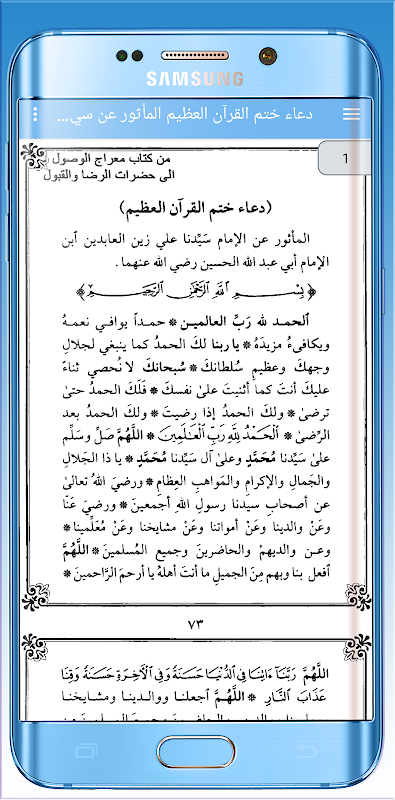 SAMSUNG
دعاء ختم القرآن العظيم المأثور عن سي...
1
من كتاب معراج الوصول
الى حضرات الرضا والقبول
(دعاء ختم القرآن العظيم)
المأثور عن الإمام سَيِّدنا علي زين العابدين ٱبن
الإمام أبي عبد الله الحسين رضي الله عنهما.
﴿بِسْمِ اللَّهِ الرَّحْمَٰنِ الرَّحِيمِ﴾
ٱلحمـد لله رَبِّ العالميـن * حمـداً يوافـي نعمـهُ
ويكافىءُ مزيدَهُ * يا ربنا لكَ الحمدُ كما ينبغي لجلالِ
وجهكَ وعظيمِ سُلطانكَ * سُبحانكَ لا نُحصي ثناءً
عليكَ أنتَ كما أثنيتَ علىٰ نفسكَ * فَلَكَ الحمدُ حتىٰ
ترضىٰ * ولكَ الحمدُ إذا رضيتَ * ولكَ الحمدُ بعد
الرِّضىٰ * ٱلْحَمْدُ لِلَّهِ رَبِّ ٱلْعَـٰلَمِينَ * اللَّهُمَّ صَلِّ وسَلِّم
علىٰ سَيِّدنا مُحَمَّدٍ وعلىٰ آل سَيِّدنا مُحَمَّدٍ * يا ذا الجَلالِ
والجَمالِ والإكرامِ والمَواهبِ العِظامِ * ورضيَ اللهُ تعالىٰ
عن أصحابِ سيدنا رسولِ اللهِ أجمعينَ * ورضيَ عَنَّا
وعَنْ والدينا وعَنْ أمواتنا وعَنْ مشايخنا وعَنْ مُعَلِّمينا *
وعـن والديهمْ والحاضرينَ وجميعِ المُسلمينَ * اللَّهُمَّ
ٱفعل بنا وبهم مِنَ الجميلِ ما أنتَ أهلهُ يا أرحمَ الرَّاحمينَ *
٧٣
اللَّهُمَّ رَبَّنَآ ءَاتِنَا فِى ٱلدُّنْيَا حَسَنَةً وَفِى ٱلْأَخِرَةِ حَسَنَةً وَقِنَا
عَذَابَ ٱلنَّارِ * اللَّهُمَّ ٱجعلنا ووالدينا ومشايخنا